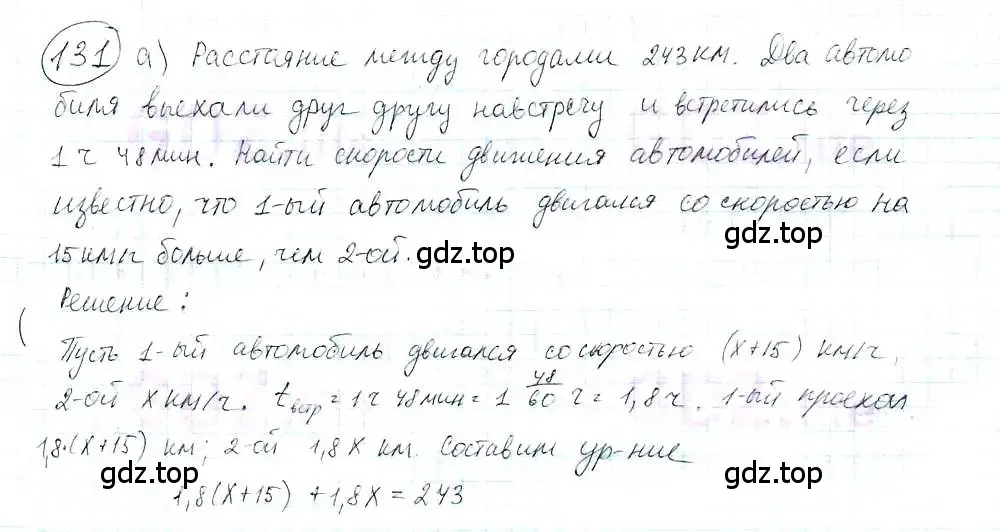 131 а) Расстояние между городами 243 км. Два автомо
биля выехали друг другу навстречу и встретились через
1 ч 48 мин. Найти скорости движения автомобилей, если
известно, что 1-ый автомобиль двигался со скоростью на
15 км/ч больше, чем 2-ой. gdz.top gdz.top
Решение:
Пусть 1-ый автомобиль двигался со скоростью (x+15) км/ч,
2-ой x км/ч. tвстр = 1 ч 48 мин = 1 48/60 ч = 1,8 ч. 1-ый проехал
1,8·(x+15) км; 2-ой 1,8x км. Составим ур-ние
gdz.top gdz.top
1,8(x+15) + 1,8x = 243